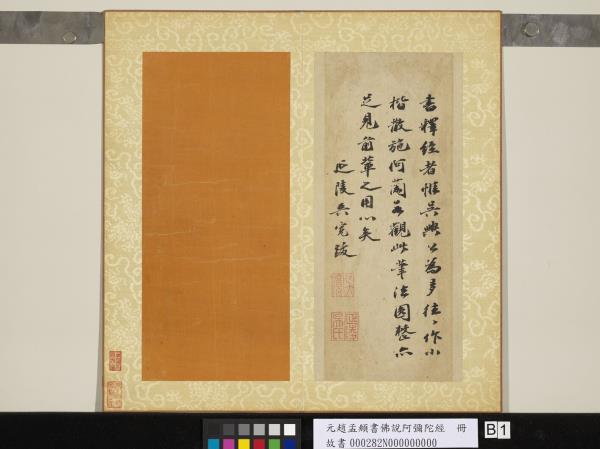 書釋經者惟吳興公為多往〻作小
楷散施何蘭若觀此筆法圓整亦
足見前輩之用心矣
延陵吳寬跋
元趙孟頫書佛說阿彌陀經 冊
故書 000282N000000000
B 1